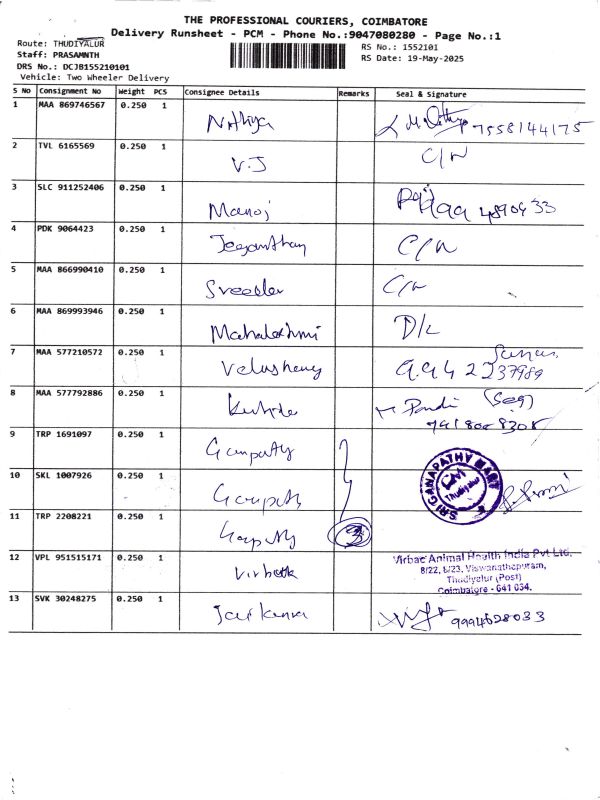 THE PROFESSIONAL COURIERS, COIMBATORE
Delivery Runsheet - PCM - Phone No.:9047080280 - Page No.:1
Route: THUDIYALUR
Staff: PRASAMNTH
DRS No.: DCJB155210101
Vehicle: Two Wheeler Delivery
RS No.: 1552101
RS Date: 19-May-2025
S No Consignment No Weight PCS Consignee Details Remarks Seal & Signature
1 MAA 869746567 0.250 1 Nithya 7558144175
2 TVL 6165569 0.250 1 V.J C/N
3 SLC 911252406 0.250 1 Manoj
4 PDK 9064423 0.250 1 Jeganathan C/N
5 MAA 866990410 0.250 1 Sreedev C/N
6 MAA 869993946 0.250 1 Mahalakshmi D/L
7 MAA 577210572 0.250 1
8 MAA 577792886 0.250 1
9 TRP 1691097 0.250 1 Ganpathy
10 SKL 1007926 0.250 1 Ganpathy
11 TRP 2208221 0.250 1 Ganpathy 3
SRI GANAPATHY MART
Thudiyalur
12 VPL 951515171 0.250 1 Virbak
Virbac Animal Health India Pvt Ltd,
8/22, 8/23, Viswanathapuram,
Thudiyalur (Post)
Coimbatore - 641 034.
13 SVK 30248275 0.250 1 Jai Kumar 9994628033